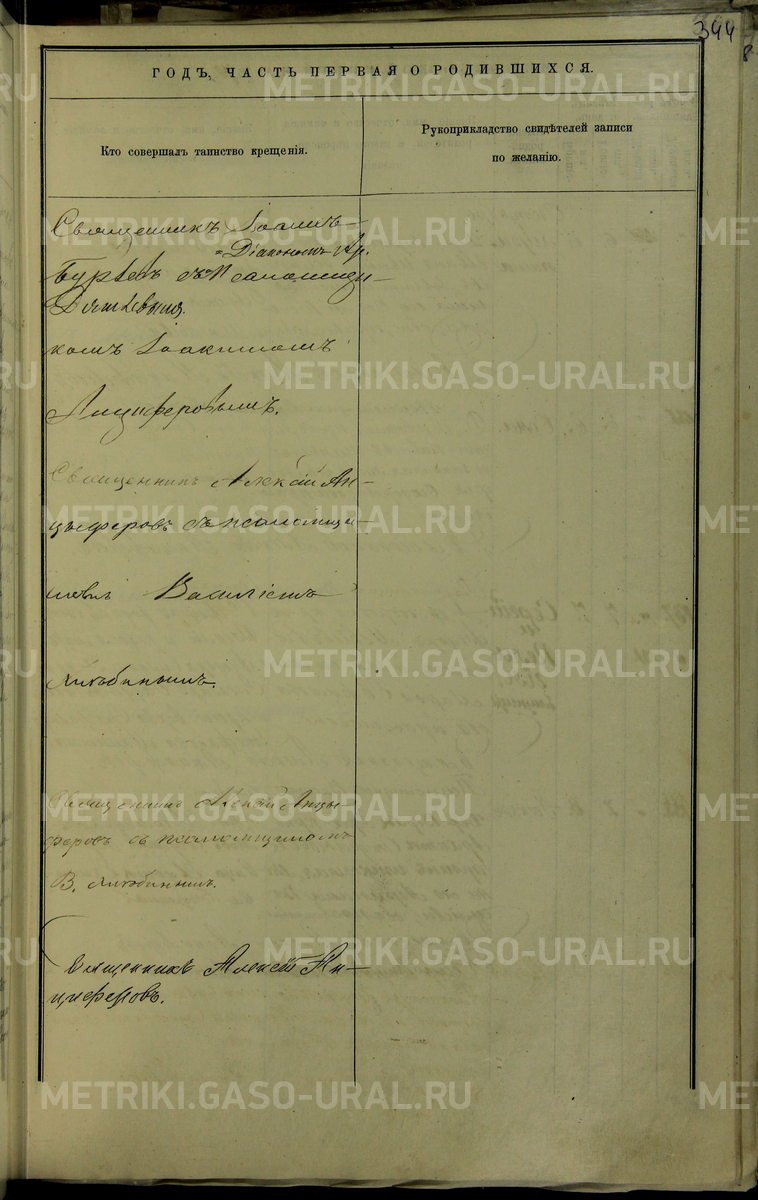 344
ГОДЪ, ЧАСТЬ ПЕРВАЯ О РОДИВШИХСЯ.
Кто совершалъ таинство крещенія.
Рукоприкладство свидѣтелей записи
по желанію.
Священникъ Іоаннъ
Діакономъ Ар.
съ Псаломщи-
комъ Іоакимомъ
Анциферовымъ.
Священникъ Алексій Ан-
цыферовъ съ псаломщи-
Василіемъ
Священникъ Алексій Анцы-
феровъ съ псаломщикомъ
В.
Священникъ Алексій Ан-
циферовъ.
METRIKI.GASO-URAL.RU